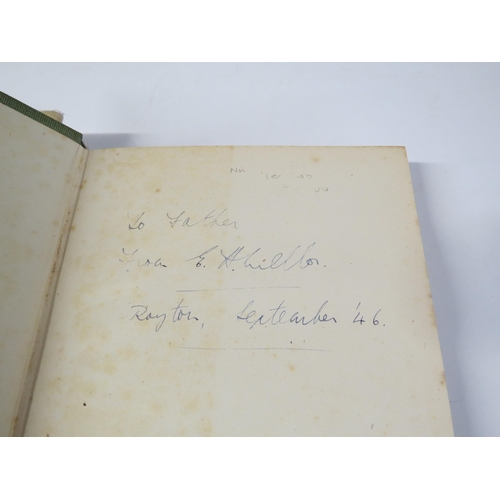 to Father
from E. H.
Royton, September '46.